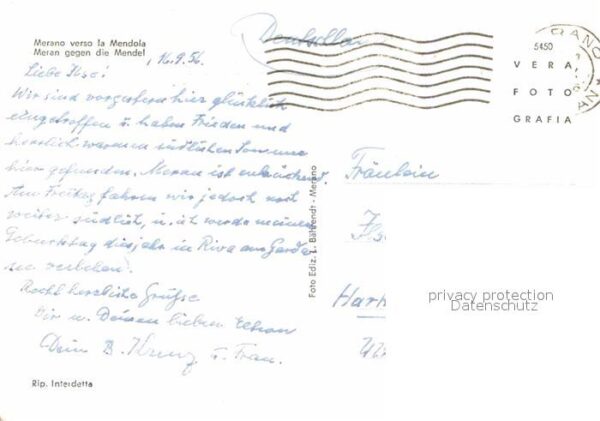 Merano verso la Mendola
Meran gegen die Mendel
16.9.56.
Deutschland
5450
VERA
FOTO
GRAFIA
Liebe
Wir sind vorgestern hier glücklich
eingetroffen u. haben Frieden und
herrlich warmen südlichen Sonne
hier gefunden. Meran ist
Am Freitag fahren wir jedoch noch
weiter südlich, u. ich werde meinen
Geburtstag diesjahr in Riva am Garda
see verleben.
Recht herzliche Grüsse
Dir u. Deinen lieben Eltern
Dein B. u. Frau.
Foto Ediz. L. Bährendt - Merano
Fräulein
Har
privacy protection
Datenschutz
Rip. Interdetta